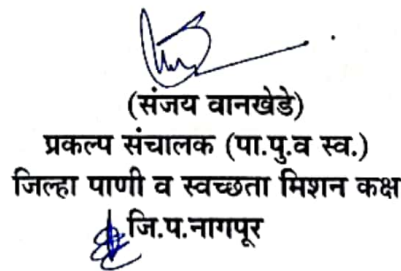 (संजय वानखेडे)
प्रकल्प संचालक (पा.पु.व स्व.)
जिल्हा पाणी व स्वच्छता मिशन कक्ष
जि.प.नागपूर